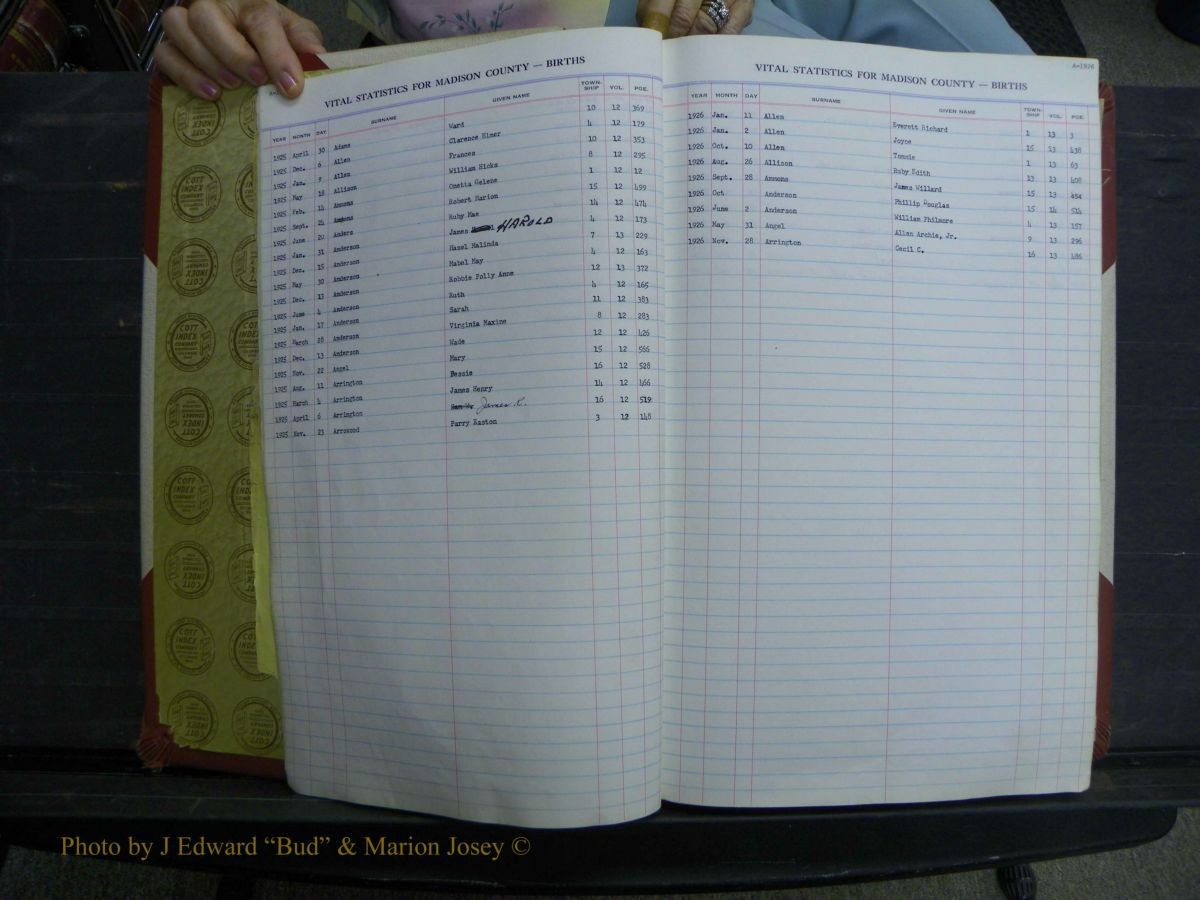 VITAL STATISTICS FOR MADISON COUNTY — BIRTHS
YEAR MONTH DAY SURNAME GIVEN NAME TOWN-SHIP VOL. PGE.
1925 April 30 Adams Ward 10 12 369
1925 Dec. 6 Allen Clarence Elmer 4 12 179
1925 Jan. 9 Allen Frances 10 12 353
1925 May 18 Allison William Hicks 8 12 295
1925 Feb. 14 Ammons Onetta Helene 1 12 12
1925 Sept. 21 Ammons Robert Marion 15 12 499
1925 June 20 Anders Ruby Mae 14 12 474
1925 Jan. 31 Anderson James HAROLD 4 12 173
1925 Dec. 15 Anderson Hazel Malinda 7 13 229
1925 May 30 Anderson Mabel May 4 12 163
1925 Dec. 13 Anderson Robbie Polly Anne 12 13 372
1925 June 4 Anderson Ruth 4 12 165
1925 Jan. 17 Anderson Sarah 11 12 383
1925 March 28 Anderson Virginia Maxine 8 12 283
1925 Dec. 13 Anderson Wade 12 12 426
1925 Nov. 22 Angel Mary 15 12 566
1925 Aug. 11 Arrington Bessie 16 12 528
1925 March 4 Arrington James Henry 14 12 466
1925 April 6 Arrington James R. 16 12 519
1925 Nov. 23 Arrowood Parry Easton 3 12 148
A-1926
VITAL STATISTICS FOR MADISON COUNTY — BIRTHS
YEAR MONTH DAY SURNAME GIVEN NAME TOWN-SHIP VOL. PGE.
1926 Jan. 11 Allen Everett Richard 1 13 3
1926 Jan. 2 Allen Joyce 15 13 438
1926 Oct. 10 Allen Tommie 1 13 63
1926 Aug. 26 Allison Ruby Edith 13 13 408
1926 Sept. 28 Ammons James Willard 15 13 454
1926 Oct Anderson Phillip Douglas 15 14 514
1926 June 2 Anderson William Philmore 4 13 157
1926 May 31 Angel Allen Archie, Jr. 9 13 296
1926 Nov. 28 Arrington Cecil C. 16 13 486
COTT INDEX COMPANY
Photo by J Edward “Bud” & Marion Josey ©